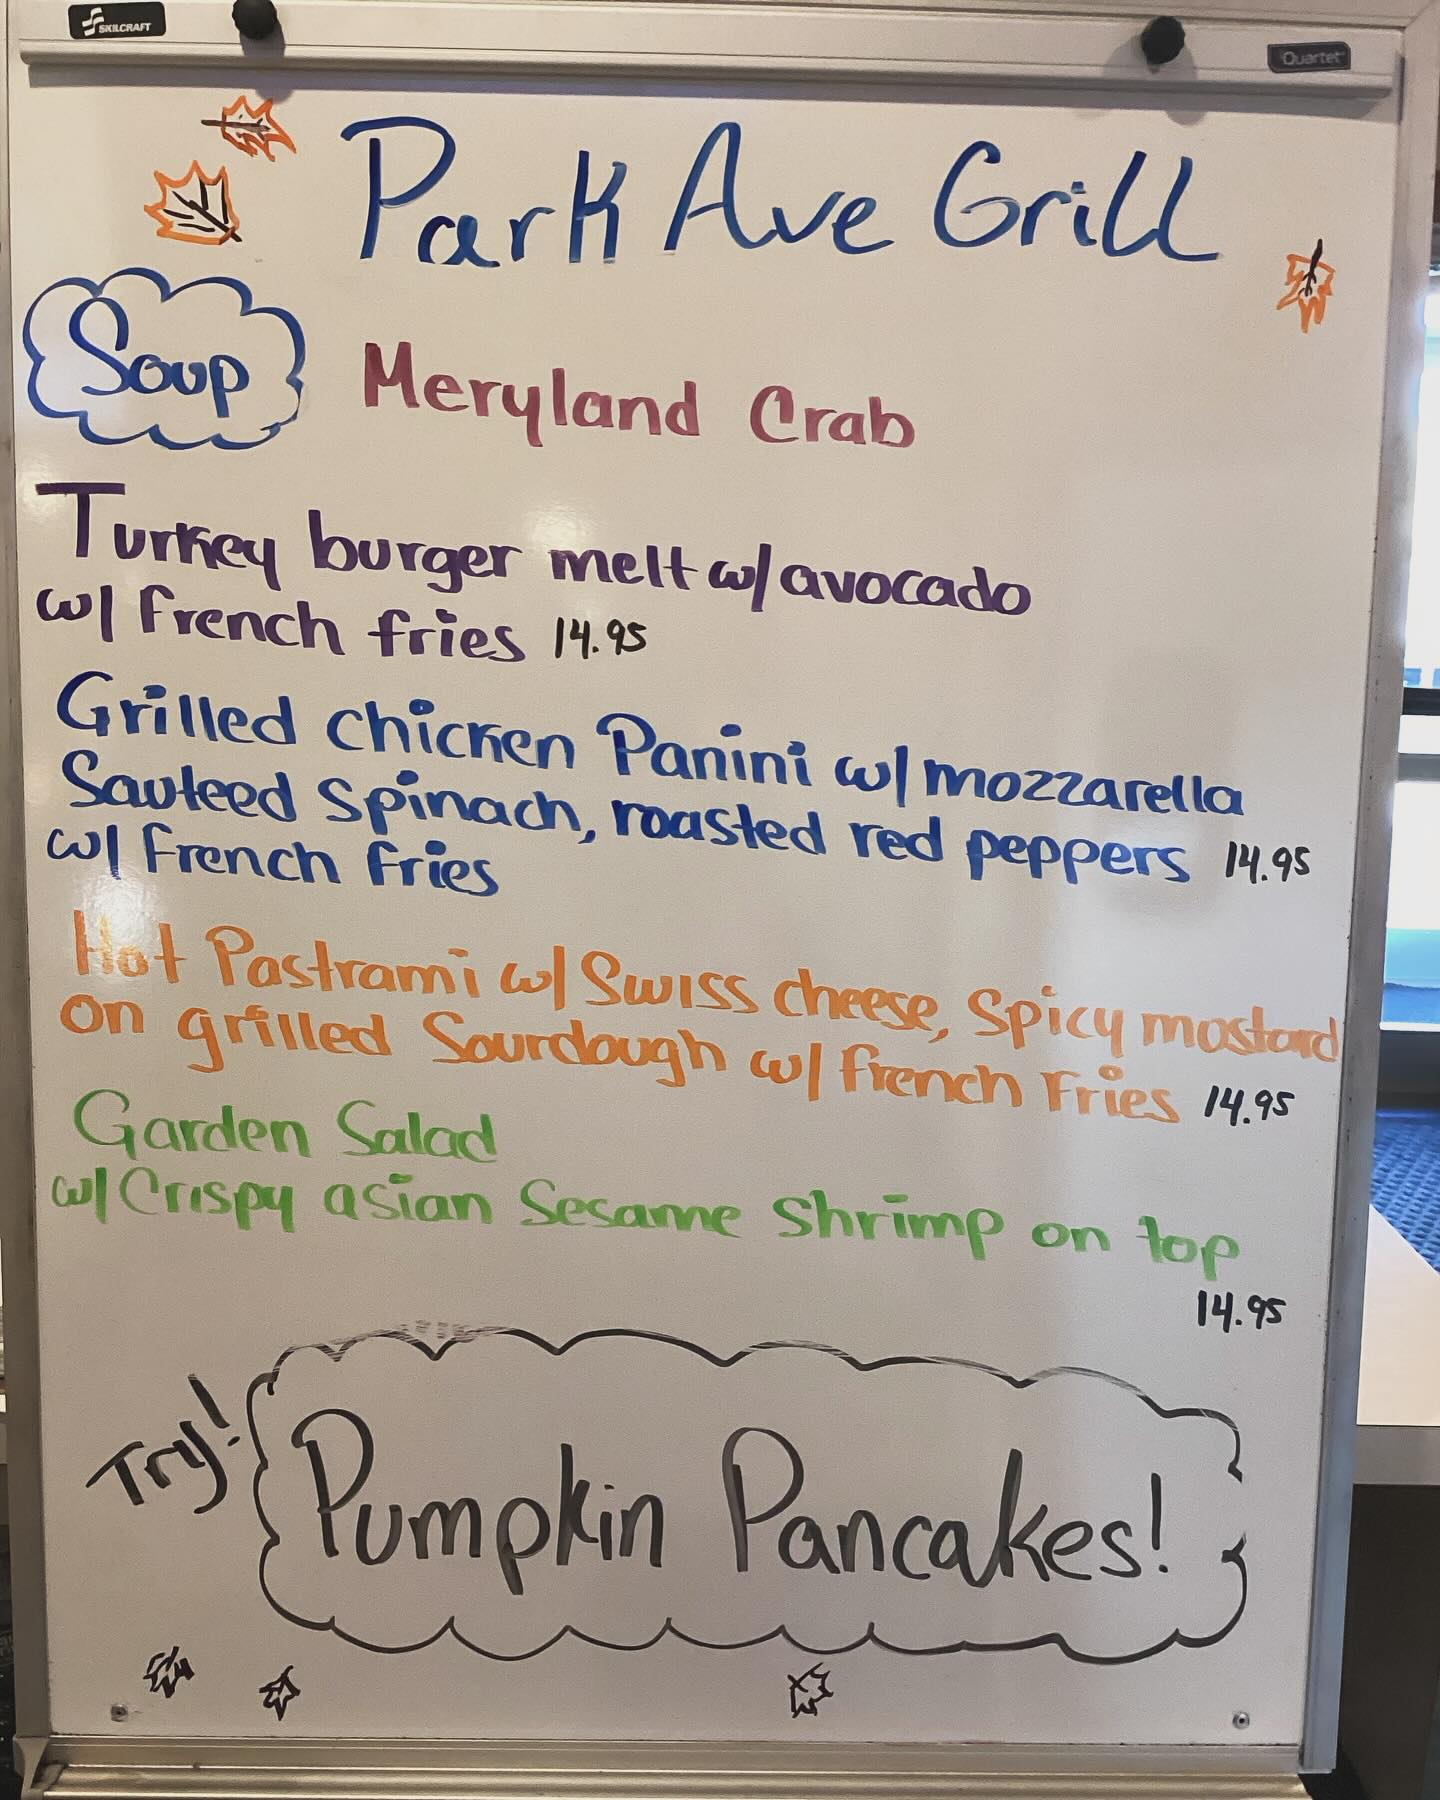 SKILCRAFT
Quartet
Park Ave Grill
Soup
Meryland Crab
Turkey burger melt w/ avocado
w/ french fries 14.95
Grilled chicken Panini w/ mozzarella
Sauteed spinach, roasted red peppers 14.95
w/ french fries
Hot Pastrami w/ Swiss cheese, Spicy mostard
on grilled Sourdough w/ french Fries 14.95
Garden Salad
w/ Crispy asian Sesame Shrimp on top
14.95
Try!
Pumpkin Pancakes!